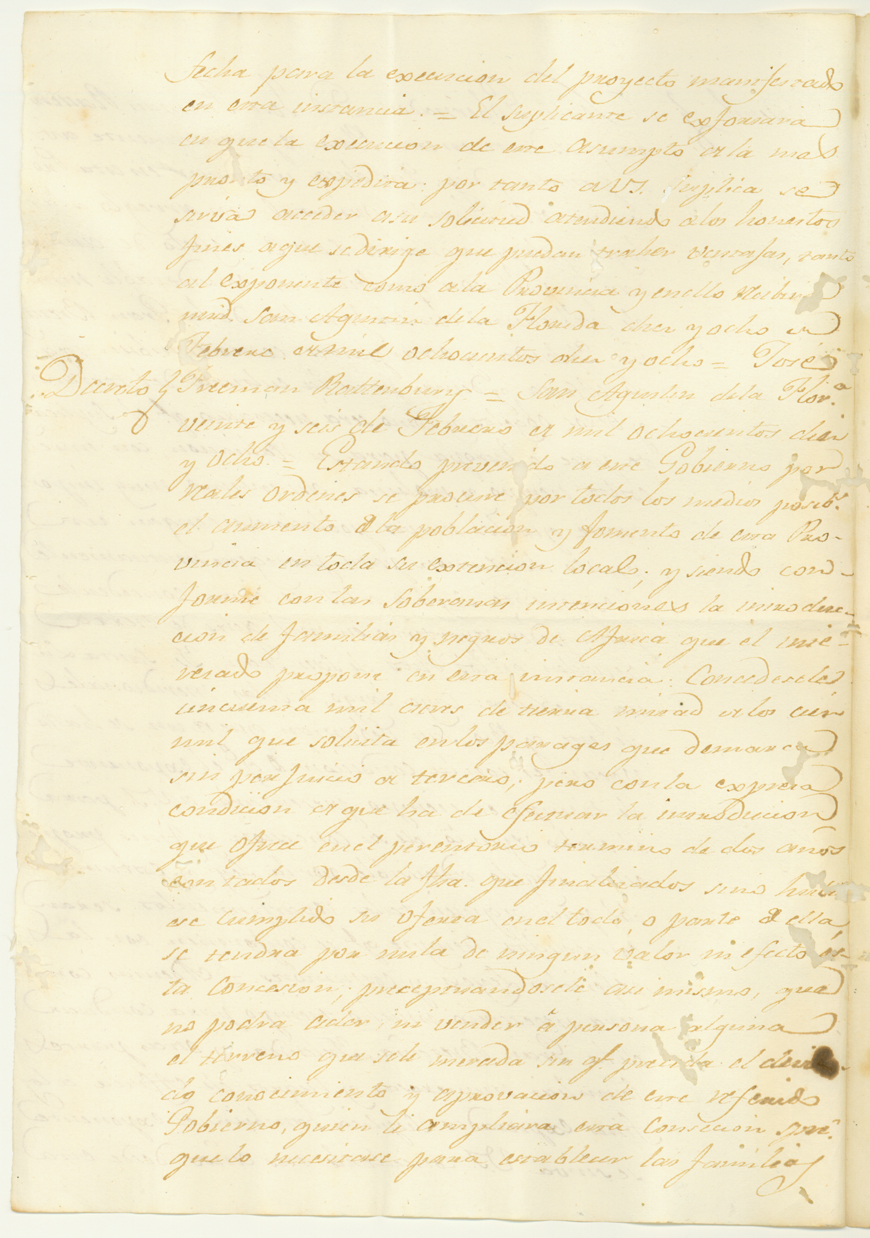 fecha para la execucion del proyecto manifestado
en esta instancia. = El suplicante se esforzará
en que la execucion de este asumpto sea la mas
pronto y expedita: por tanto a VS. suplica se
sirva acceder a su solicitud atendiendo a los honestos
fines a que se dirige que puedan traher ventajas, tanto
al exponente como a la Provincia y en ello recibirá
mrd. San Agustin de la Florida diez y ocho de
Febrero de mil ochocientos diez y ocho = José
Decreto } Freeman Rattenbury = San Agustin de la Flor.ª
veinte y seis de Febrero de mil ochocientos diez
y ocho. = Estando prevenido a este Gobierno por
reales ordenes se procure por todos los medios posib.ˢ
el aumento de la poblacion y fomento de esta Pro-
vincia en toda su extencion local; y siendo con-
forme con las soberanas intenciones la introduc-
cion de familias y negros de Africa que el inte-
resado propone en esta instancia: Concedesele
cincuenta mil acres de tierra mitad de los cien
mil que solicita en los parages que demarca
sin perjuicio de tercero; pero con la expresa
condicion de que ha de efectuar la introducion
que ofrece en el perentorio termino de dos años
contados desde la fha. que finalizados sino hubi
ese cumplido su oferta en el todo, o parte de ella,
se tendra por nula de ningun valor ni efecto es-
ta concesion; preceptuandosele asi mismo, que
no podra ceder, ni vender á persona alguna
el terreno que se le merceda sin q.ᵉ preceda el devi-
do conocimiento y aprovacion de este referido
Gobierno, quien le ampliará esta concecion spré.
que lo necesitase para establecer las familias